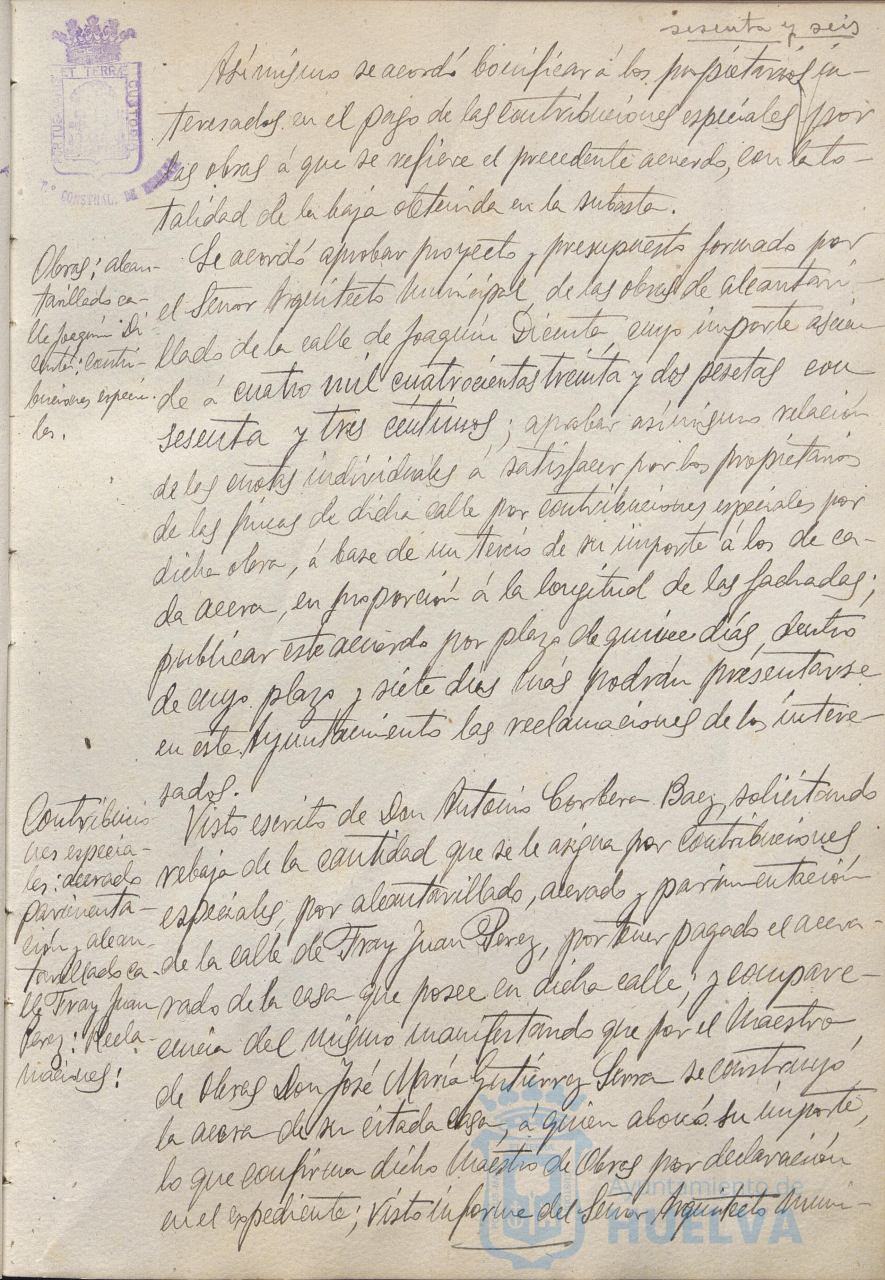 sesenta y seis
Asimismo se acordó bonificar á los propietarios in-
teresados en el pago de las contribuciones especiales por
las obras á que se refiere el precedente acuerdo, con la to-
talidad de la baja obtenida en la subasta.
Obras: alcan-
tarillado ca-
lle Joaquín Di
centa: contri-
buciones especia-
les.
Se acordó aprobar proyecto y presupuesto formado por
el Señor Arquitecto Municipal, de las obras de alcantari-
llado de la calle de Joaquín Dicenta, cuyo importe ascien
de á cuatro mil cuatrocientas treinta y dos pesetas con
sesenta y tres céntimos; aprobar asimismo relación
de las cuotas individuales á satisfacer por los propietarios
de las fincas de dicha calle por contribuciones especiales por
dicha obra, á base de un tercio de su importe á los de ca-
da acera, en proporción á la longitud de las fachadas;
publicar este acuerdo por plazo de quince días, dentro
de cuyo plazo y siete días más podrán presentarse
en este Ayuntamiento las reclamaciones de los intere-
sados.
Contribucio
nes especia-
les: acerado
pavimenta-
ción y alcan-
tarillado ca-
lle Fray Juan
Perez: Recla-
maciones:
Visto escrito de Don Antonio Corbera Baez, solicitando
rebaja de la cantidad que se le asigna por contribuciones
especiales, por alcantarillado, acerado y pavimentación
de la calle de Fray Juan Perez, por tener pagado el acera-
rado de la casa que posee en dicha calle; y compare-
cencia del mismo manifestando que por el Maestro
de Obras Don José María Gutiérrez Serra se construyó
la acera de su citada casa, á quien abonó su importe,
lo que confirma dicho Maestro de Obras por declaración
en el expediente; visto informe del Señor Arquitecto Muni-
PORTUS
ET TERRÆ
CUSTODIA
Ayuntamiento de
HUELVA